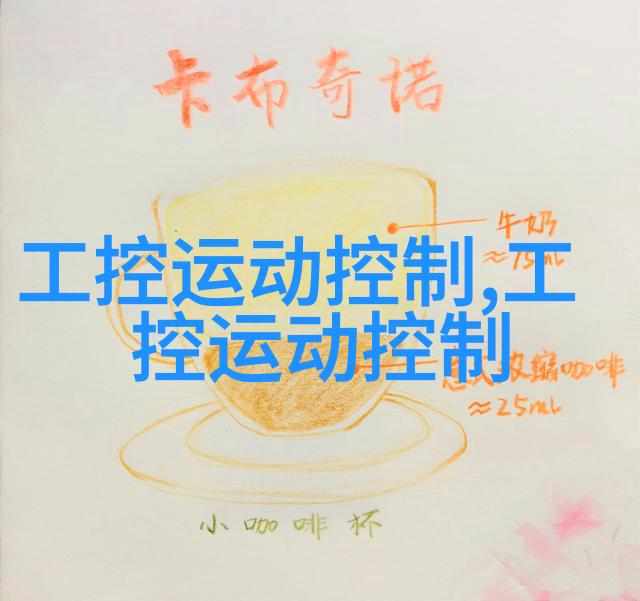 卡布奇诺
牛奶
≈75ml
工控运动控制,工
控运动控制
浓缩咖啡
≈25ml
小咖啡杯